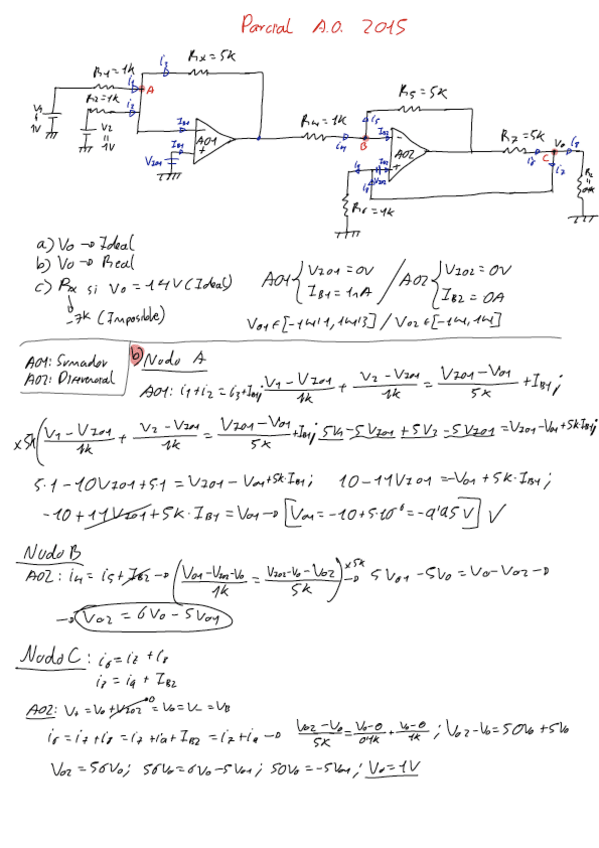 Parcial A.O. 2015
R1=1k
Rx=5k
i3
i1
A
R2=1k
i2
V1
1V
V2
1V
IB1
A01
VIO1
R4=1k
i4
B
R5=5k
i5
IB2
A02
R7=5k
Vo
C
i7
R6=1k
a) Vo → Ideal
b) Vo → Real
c) Rx si Vo = 14V (Ideal)
-7k (Imposible)
A01 { VIO1 = 0V
IB1 = 1nA
/ A02 { VIO2 = 0V
IB2 = 0A
A01: Sumador
A02: Diferencial
b) Nodo A
A01: i1+i2 = i3+IB1; (V1-VIO1)/1k + (V2-VIO1)/1k = (VIO1-VO1)/5k + IB1;
x5k ( (V1-VIO1)/1k + (V2-VIO1)/1k = (VIO1-VO1)/5k + IB1; 5V1-5VIO1+5V2-5VIO1 = VIO1-VO1+5k·IB1;
5·1-10VIO1+5·1 = VIO1-VO1+5k·IB1; 10-11VIO1 = -VO1+5k·IB1;
-10+11VIO1+5k·IB1 = VO1 → [VO1 = -10+5·10⁻⁶ = -9'95V] √
Nodo B
A02: i4 = i5+IB2 → ( (VO1-VIO2-Vo)/1k = (VIO2-Vo-VO2)/5k ) x5k → 5VO1-5Vo = Vo-VO2 →
→ VO2 = 6Vo-5VO1
Nodo C: i6 = i7+i8
i8 = i9+IB2
A02: V+ = Vo+VIO2 = Vo = V- = VB
i6 = i7+i8 = i7+i9+IB2 = i7+i9 → (VO2-Vo)/5k = (Vo-0)/0'1k + (Vo-0)/1k; VO2-Vo = 50Vo+5Vo
VO2 = 56Vo; 56Vo = 6Vo-5VO1; 50Vo = -5VO1; Vo = 1V